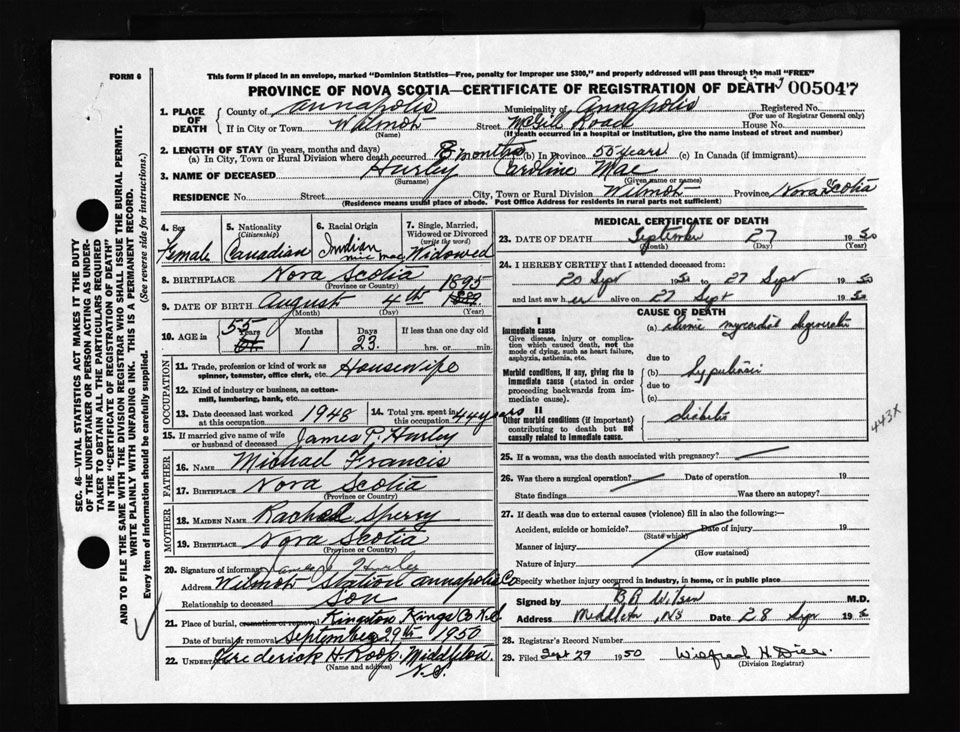 FORM 6
This form if placed in an envelope, marked "Dominion Statistics—Free, penalty for improper use $300," and properly addressed will pass through the mail "FREE"
PROVINCE OF NOVA SCOTIA—CERTIFICATE OF REGISTRATION OF DEATH 005047
1. PLACE OF DEATH
County of Annapolis Municipality of Annapolis Registered No.
(For use of Registrar General only)
If in City or Town Wilmot Street McGill Road House No.
(Name) (If death occurred in a hospital or institution, give the name instead of street and number)
2. LENGTH OF STAY (in years, months and days)
(a) In City, Town or Rural Division where death occurred 8 months (b) In Province 55 years (c) In Canada (if immigrant)
3. NAME OF DECEASED Hurley Caroline Mae
(Surname) (Given name or names)
RESIDENCE No. Street City, Town or Rural Division Wilmot Province Nova Scotia
(Residence means usual place of abode. Post Office Address for residents in rural parts not sufficient)
4. Sex Female
5. Nationality (Citizenship) Canadian
6. Racial Origin Indian mic mac
7. Single, Married, Widowed or Divorced (write the word) Widowed
8. BIRTHPLACE Nova Scotia
(Province or Country)
9. DATE OF BIRTH August 4th 1895
(Month) (Day) (Year)
10. AGE in 55 Years 1 Months 23 Days If less than one day old
hrs. or min.
OCCUPATION
11. Trade, profession or kind of work as spinner, teamster, office clerk, etc. Housewife
12. Kind of industry or business, as cotton-mill, lumbering, bank, etc.
13. Date deceased last worked at this occupation 1948 14. Total yrs. spent in this occupation 44 years
15. If married give name of wife or husband of deceased James P. Hurley
FATHER
16. NAME Michael Francis
17. BIRTHPLACE Nova Scotia
(Province or Country)
MOTHER
18. MAIDEN NAME Rachel Sperry
19. BIRTHPLACE Nova Scotia
(Province or Country)
20. Signature of informant James Hurley
Address Wilmot Station Annapolis Co
Relationship to deceased Son
21. Place of burial, cremation or removal Kingston, Kings Co N.S
Date of burial or removal September 29th 1950
22. UNDERTAKER Frederick H. Roop. Middleton. N.S.
(Name and address)
MEDICAL CERTIFICATE OF DEATH
23. DATE OF DEATH September 27 1950
(Month) (Day) (Year)
24. I HEREBY CERTIFY that I attended deceased from:
20 Sept 1950 to 27 Sept 1950
and last saw her alive on 27 Sept 1950
CAUSE OF DEATH
I
Immediate cause
Give disease, injury or complication which caused death, not the mode of dying, such as heart failure, asphyxia, asthenia, etc.
(a) chronic myocardial
due to
Morbid conditions, if any, giving rise to immediate cause (stated in order proceeding backwards from immediate cause).
(b)
due to
(c)
II
Other morbid conditions (if important) contributing to death but not causally related to immediate cause.
diabetes
443X
25. If a woman, was the death associated with pregnancy?
26. Was there a surgical operation? Date of operation 19
State findings Was there an autopsy?
27. If death was due to external causes (violence) fill in also the following:—
Accident, suicide or homicide? Date of injury 19
(State which)
Manner of injury
(How sustained)
Nature of injury
Specify whether injury occurred in industry, in home, or in public place
Signed by B A Wilson M.D.
Address Middleton, NS Date 28 Sept 1950
28. Registrar's Record Number
29. Filed Sept 29 1950
(Division Registrar)
SEC. 46—VITAL STATISTICS ACT MAKES IT THE DUTY
OF THE UNDERTAKER OR PERSON ACTING AS UNDER-
TAKER TO OBTAIN ALL THE PARTICULARS REQUIRED
IN THE "CERTIFICATE OF REGISTRATION OF DEATH"
AND TO FILE THE SAME WITH THE DIVISION REGISTRAR WHO SHALL ISSUE THE BURIAL PERMIT.
WRITE PLAINLY WITH UNFADING INK. THIS IS A PERMANENT RECORD.
Every item of information should be carefully supplied. (See reverse side for instructions.)